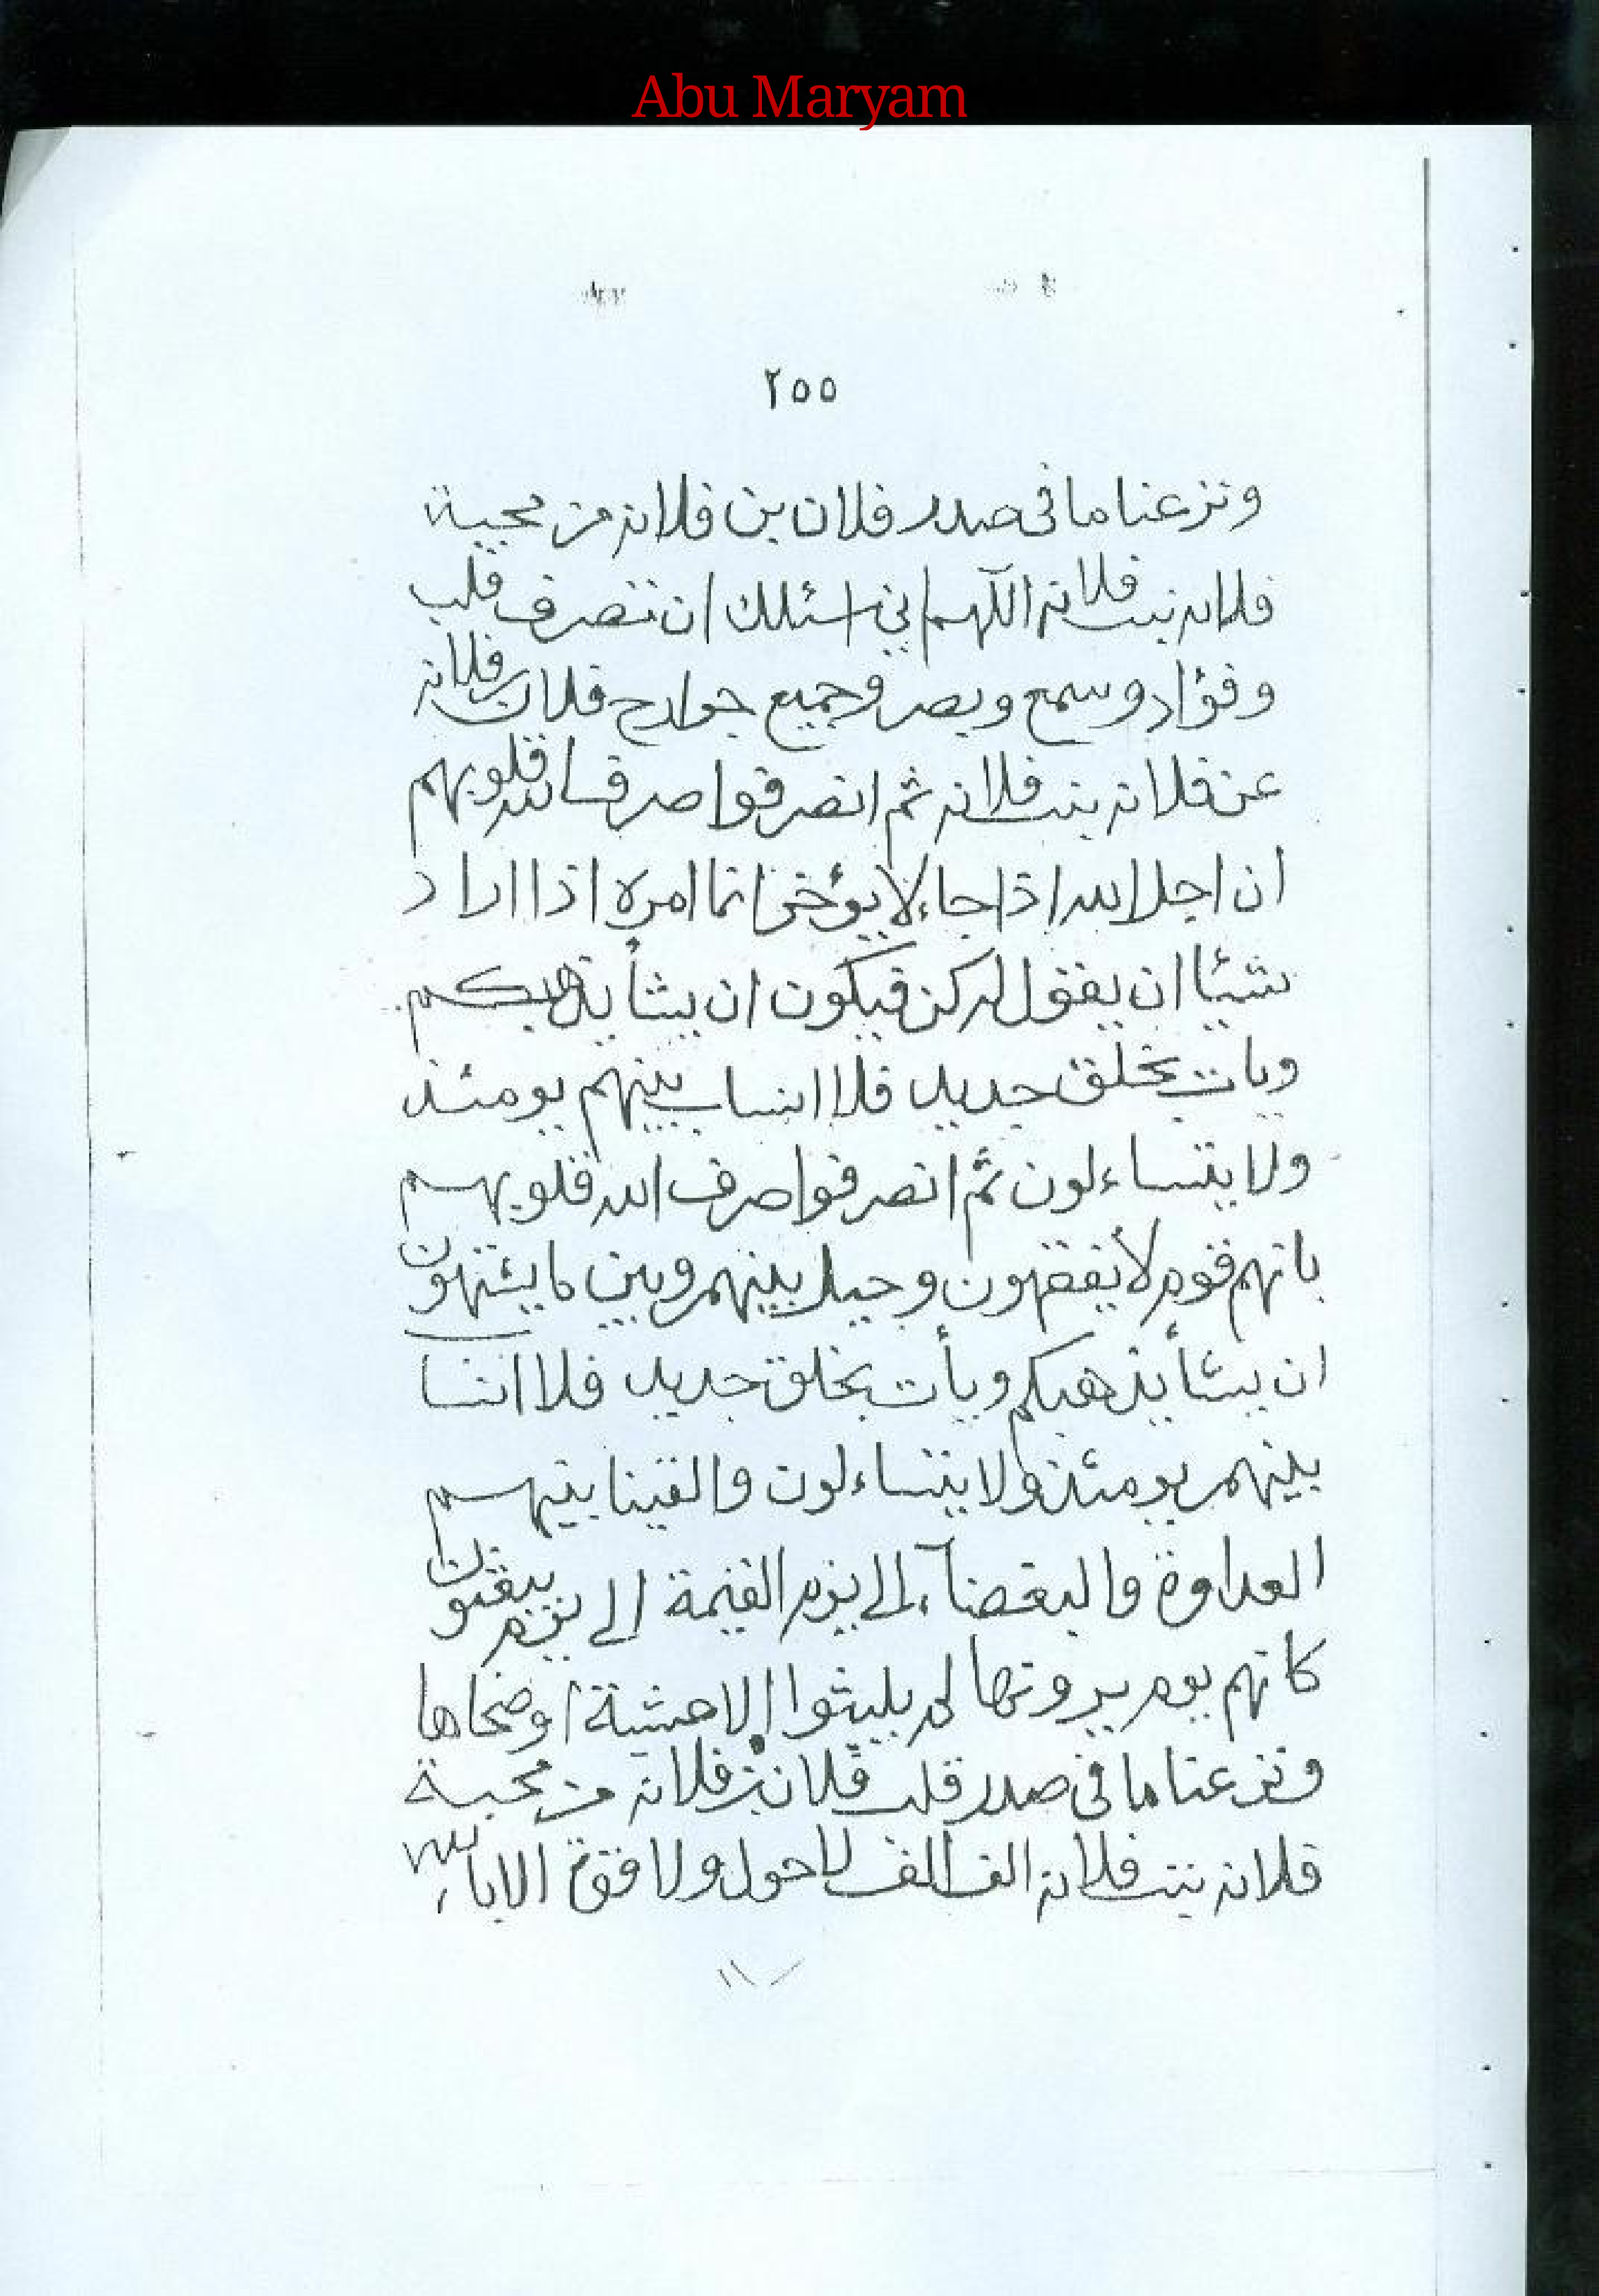 Abu Maryam
٢٥٥
ونزعنا ما فى صدر فلان بن فلانه من محبية
فلانه بنت فلانه اللهم اني اسئلك ان تصرف قلب
وفؤاد وسمع وبصر وجميع جوارح فلان بن فلانه
عن فلانه بنت فلانه ثم انصرفوا صرف الله قلوبهم
ان اجل الله اذا جاء لا يؤخر انما امره اذا اراد
شيئا ان يقول له كن فيكون ان يشأ يذهبكم
ويات بخلق جديد فلا انساب بينهم يومئذ
ولا يتساءلون ثم انصرفوا صرف الله قلوبهم
بانهم قوم لا يفقهون وحيل بينهم وبين ما يشتهون
ان يشأ يذهبكم ويأت بخلق جديد فلا انسا
بينهم يومئذ ولا يتساءلون والقينا بينهم
العداوة والبغضآء الى يوم القيمة الى يوم يبعثون
كانهم يوم يرونها لم يلبثوا الا عشية او ضحاها
ونزعنا ما فى صدر قلب فلان بن فلانه من محبة
فلانه بنت فلانه الف الف لا حول ولا قوة الا بالله